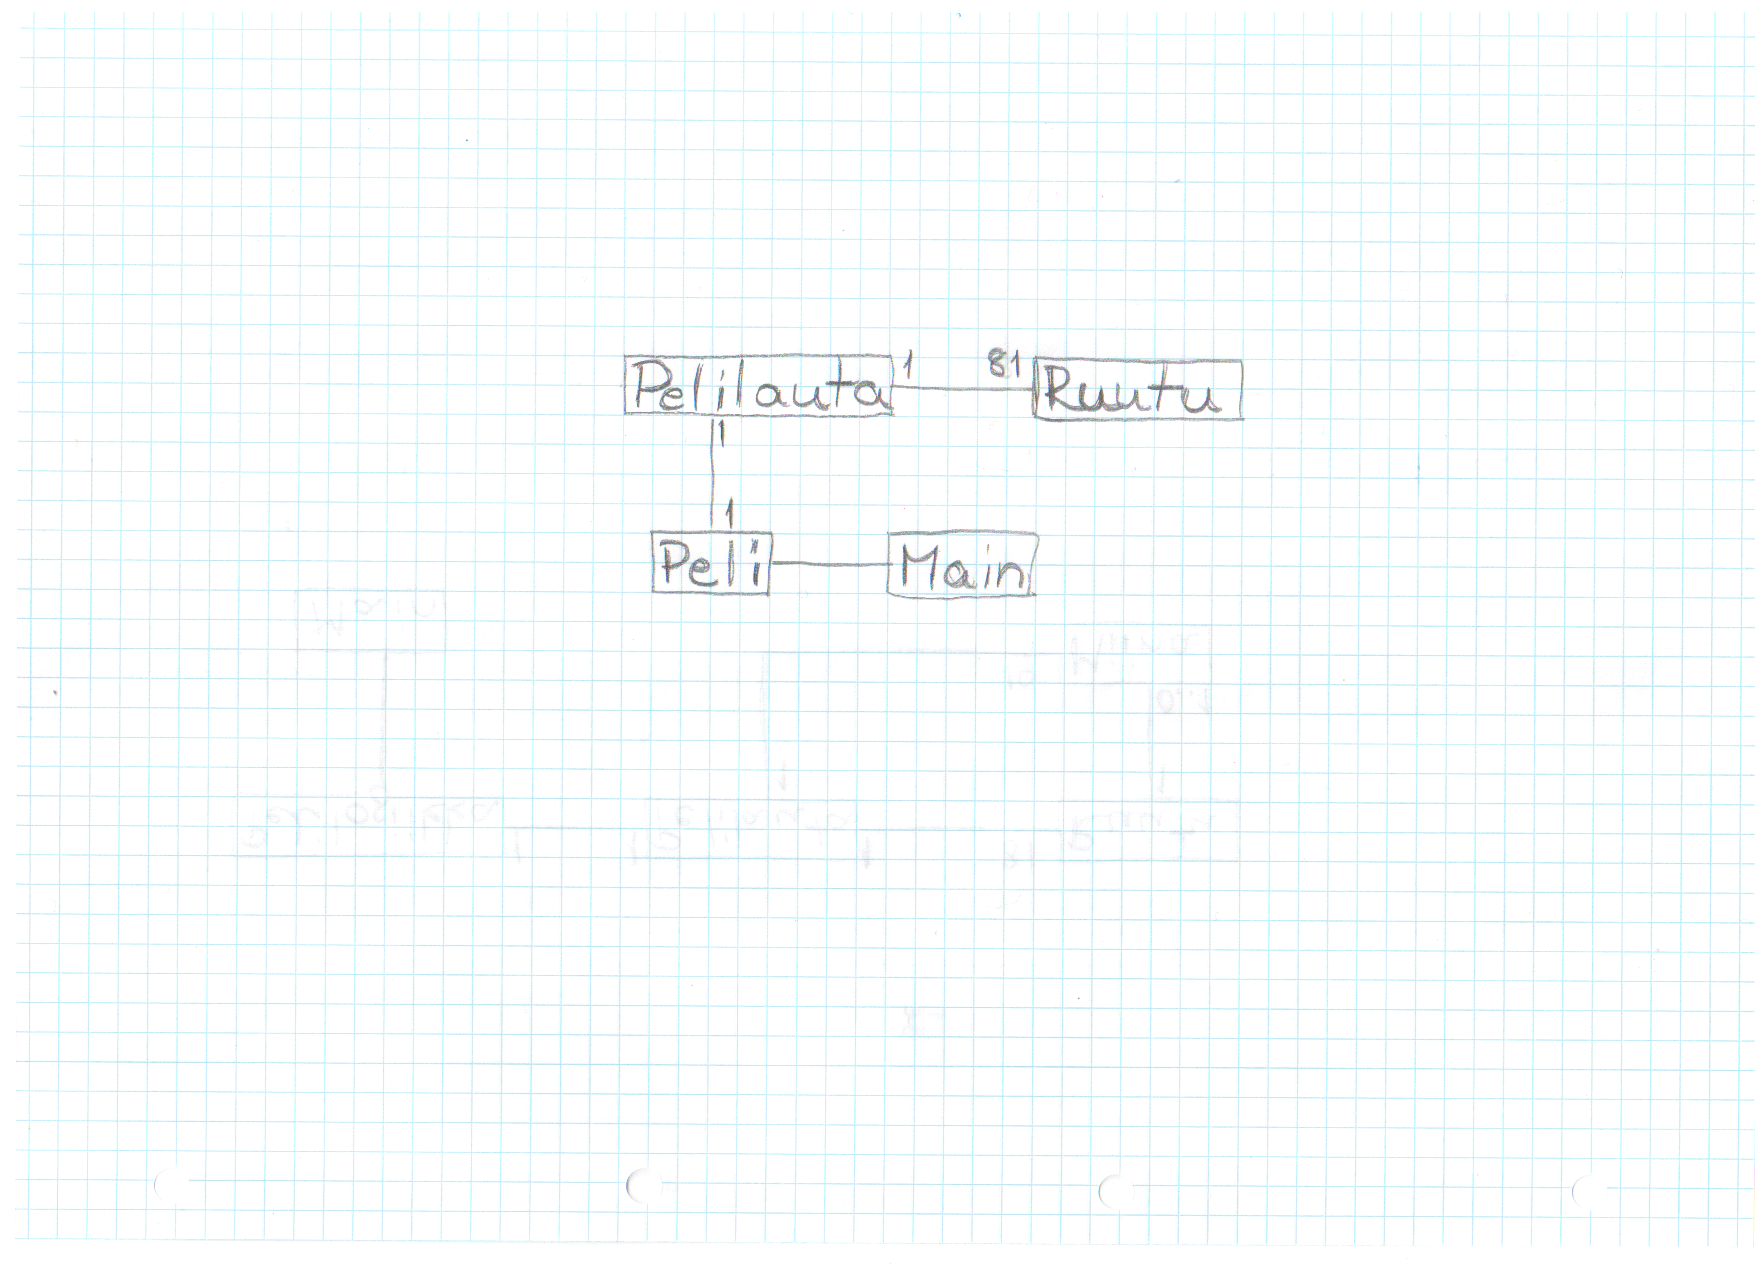 Pelilauta 1 81 Ruutu
1
1
Peli Main